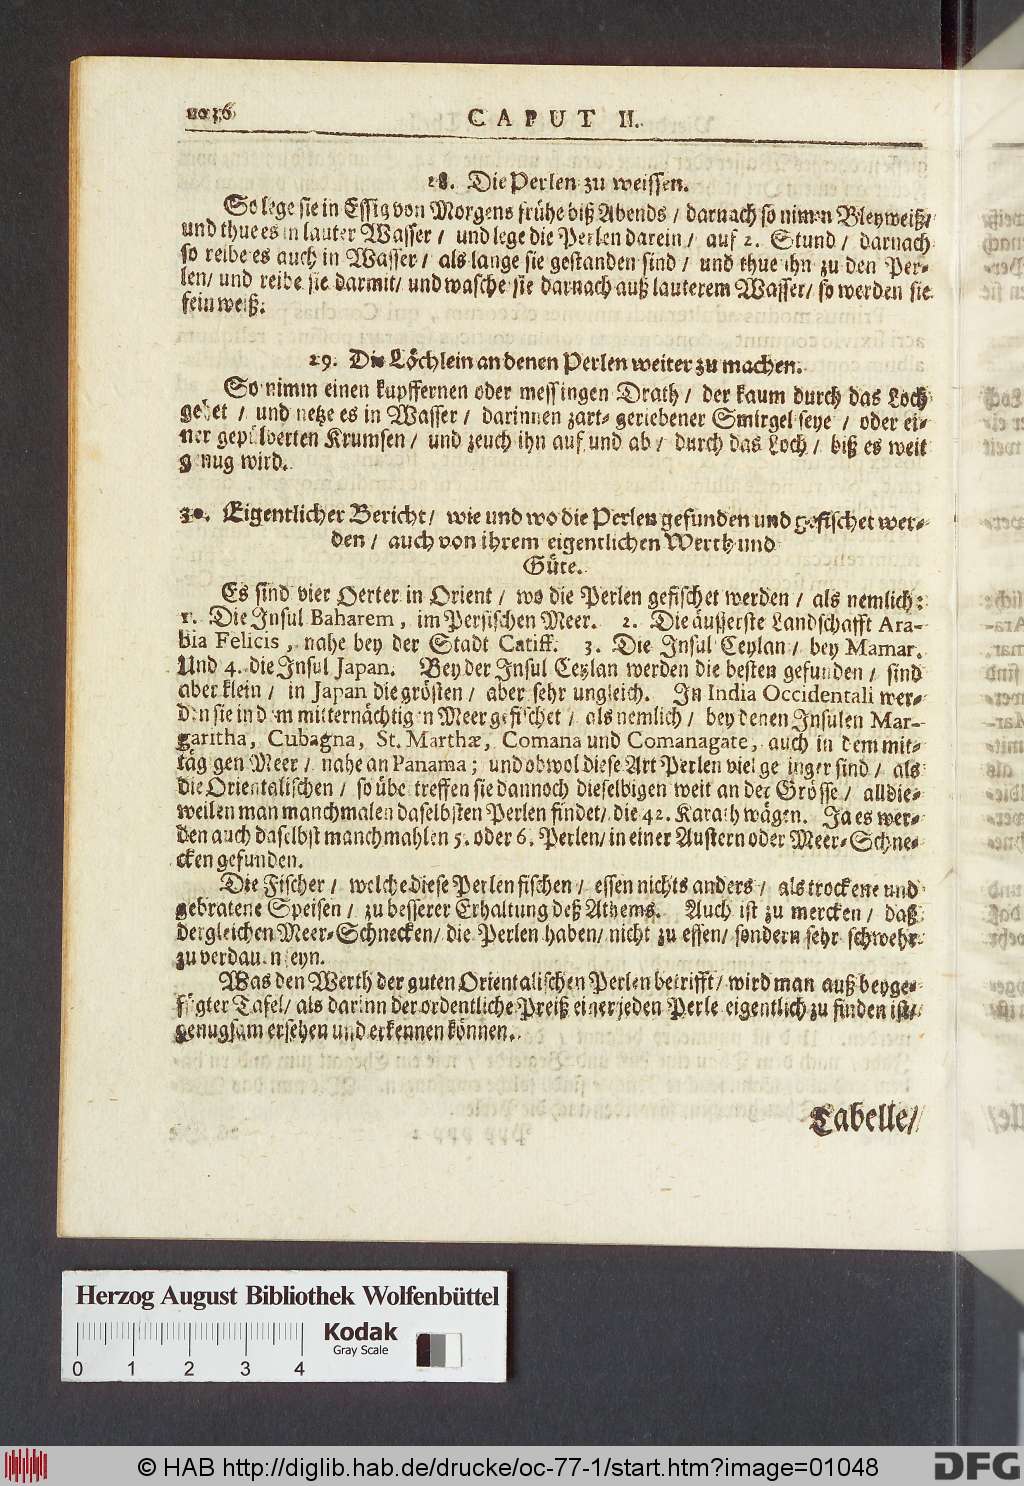 CAPUT II.
28. Die Perlen zu weissen.
So lege sie in Essig von Morgens frühe biß Abends / darnach so nimm Bleyweiß /
und thue es in lauter Wasser / und lege die Perlen darein / auf 2. Stund / darnach
so reibe es auch in Wasser / als lange sie gestanden sind / und thue ihn zu den Per-
len / und reibe sie darmit / und wasche sie darnach auß lauterem Wasser / so werden sie
fein weiß.
29. Die Löchlein an denen Perlen weiter zu machen.
So nimm einen kupffernen oder messingen Drath / der kaum durch das Loch
gehet / und netze es in Wasser / darinnen zart-geriebener Smirgel seye / oder ei-
ner gepülverten Krumsen / und zeuch ihn auf und ab / durch das Loch / biß es weit
genug wird.
30. Eigentlicher Bericht / wie und wo die Perlen gefunden und gefischet wer-
den / auch von ihrem eigentlichen Werth und
Güte.
Es sind vier Oerter in Orient / wo die Perlen gefischet werden / als nemlich:
1. Die Insul Baharem, im Persischen Meer. 2. Die äusserste Landschafft Ara-
bia Felicis, nahe bey der Stadt Catiff. 3. Die Insul Ceylan / bey Mamar.
Und 4. die Insul Japan. Bey der Insul Ceylan werden die besten gefunden / sind
aber klein / in Japan die grösten / aber sehr ungleich. In India Occidentali wer-
den sie in dem mitternächtigen Meer gefischet / als nemlich / bey denen Insulen Mar-
garitha, Cubagna, St. Marthæ, Comana und Comanagate, auch in dem mit-
tägigen Meer / nahe an Panama; und obwol diese Art Perlen viel geringer sind / als
die Orientalischen / so übertreffen sie dannoch dieselbigen weit an der Grösse / alldie-
weilen man manchmalen daselbsten Perlen findet / die 42. Karath wägen. Ja es wer-
den auch daselbst manchmahlen 5. oder 6. Perlen / in einer Austern oder Meer-Schne-
cken gefunden.
Die Fischer / welche diese Perlen fischen / essen nichts anders / als trockene und
gebratene Speisen / zu besserer Erhaltung deß Athems. Auch ist zu mercken / daß
dergleichen Meer-Schnecken / die Perlen haben / nicht zu essen / sondern sehr schwehr
zu verdauen seyn.
Was den Werth der guten Orientalischen Perlen betrifft / wird man auß beyge-
fügter Tafel / als darinn der ordentliche Preiß einer jeden Perle eigentlich zu finden ist /
genugsam ersehen und erkennen können.
Tabelle /
Herzog August Bibliothek Wolfenbüttel
Kodak
Gray Scale
0 1 2 3 4
© HAB http://diglib.hab.de/drucke/oc-77-1/start.htm?image=01048
DFG